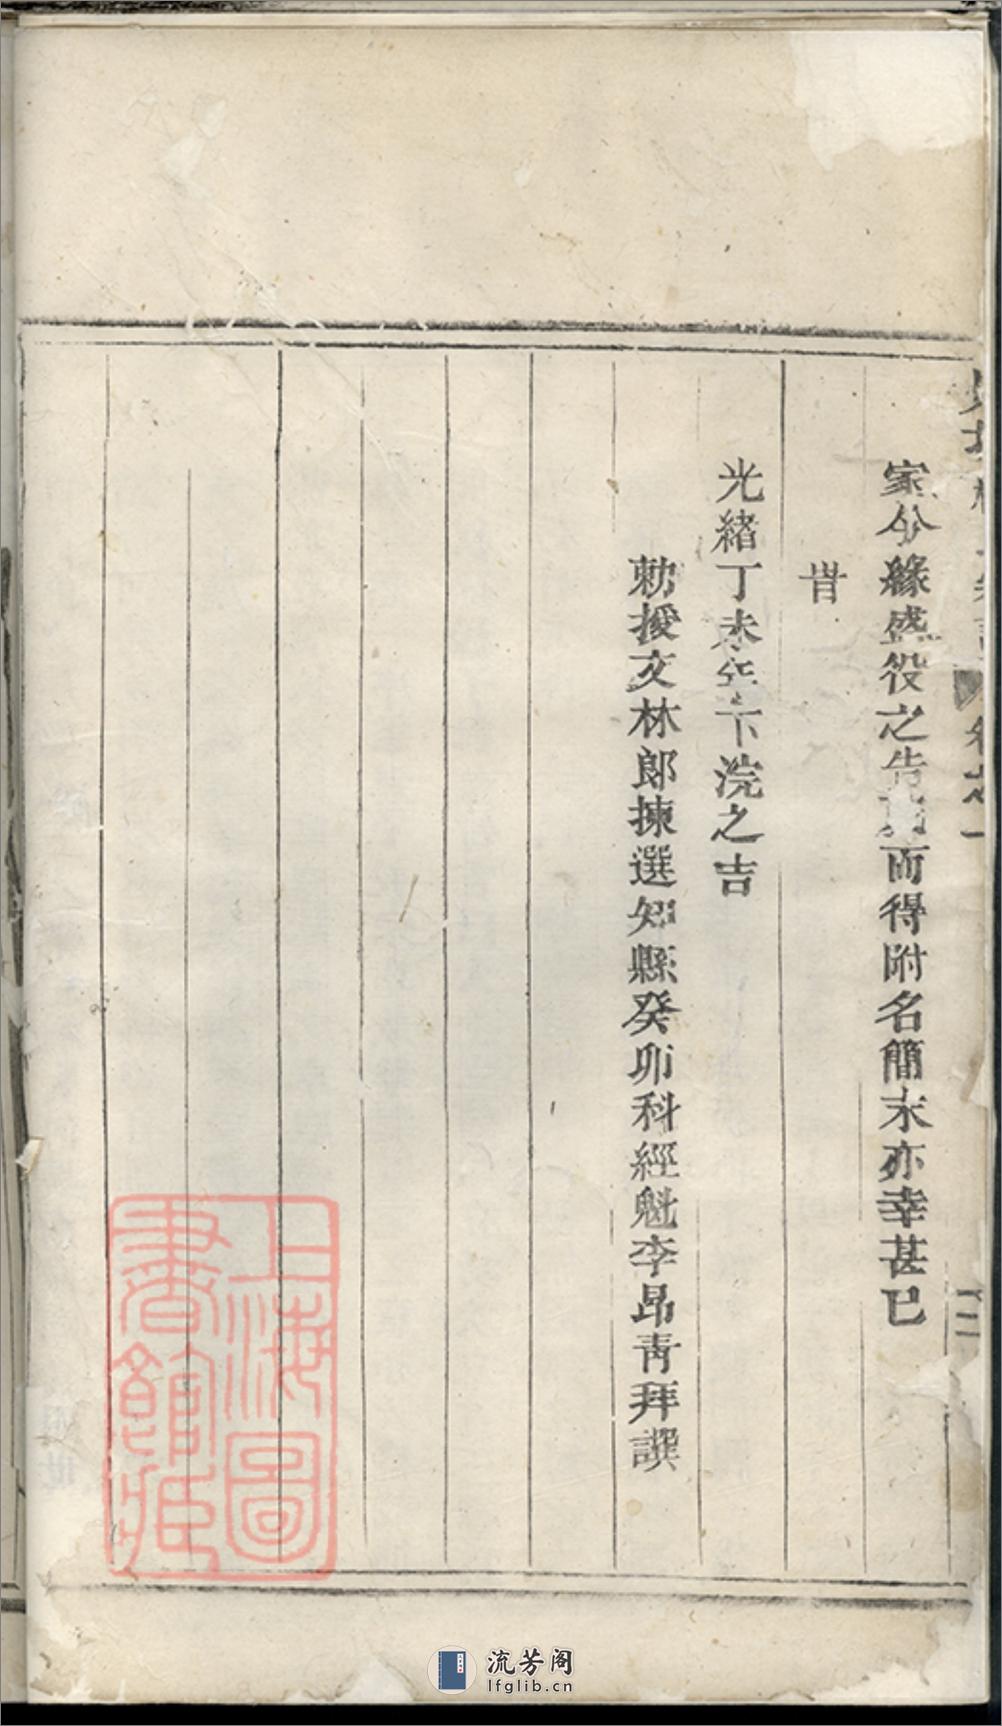 家今緣盛役之告而得附名簡末亦幸甚已
旹
光緒丁未下浣之吉
勅授文林郎揀選知縣癸卯科經魁李昂青拜譔
上海圖書館藏
流芳阁
lfglib.cn